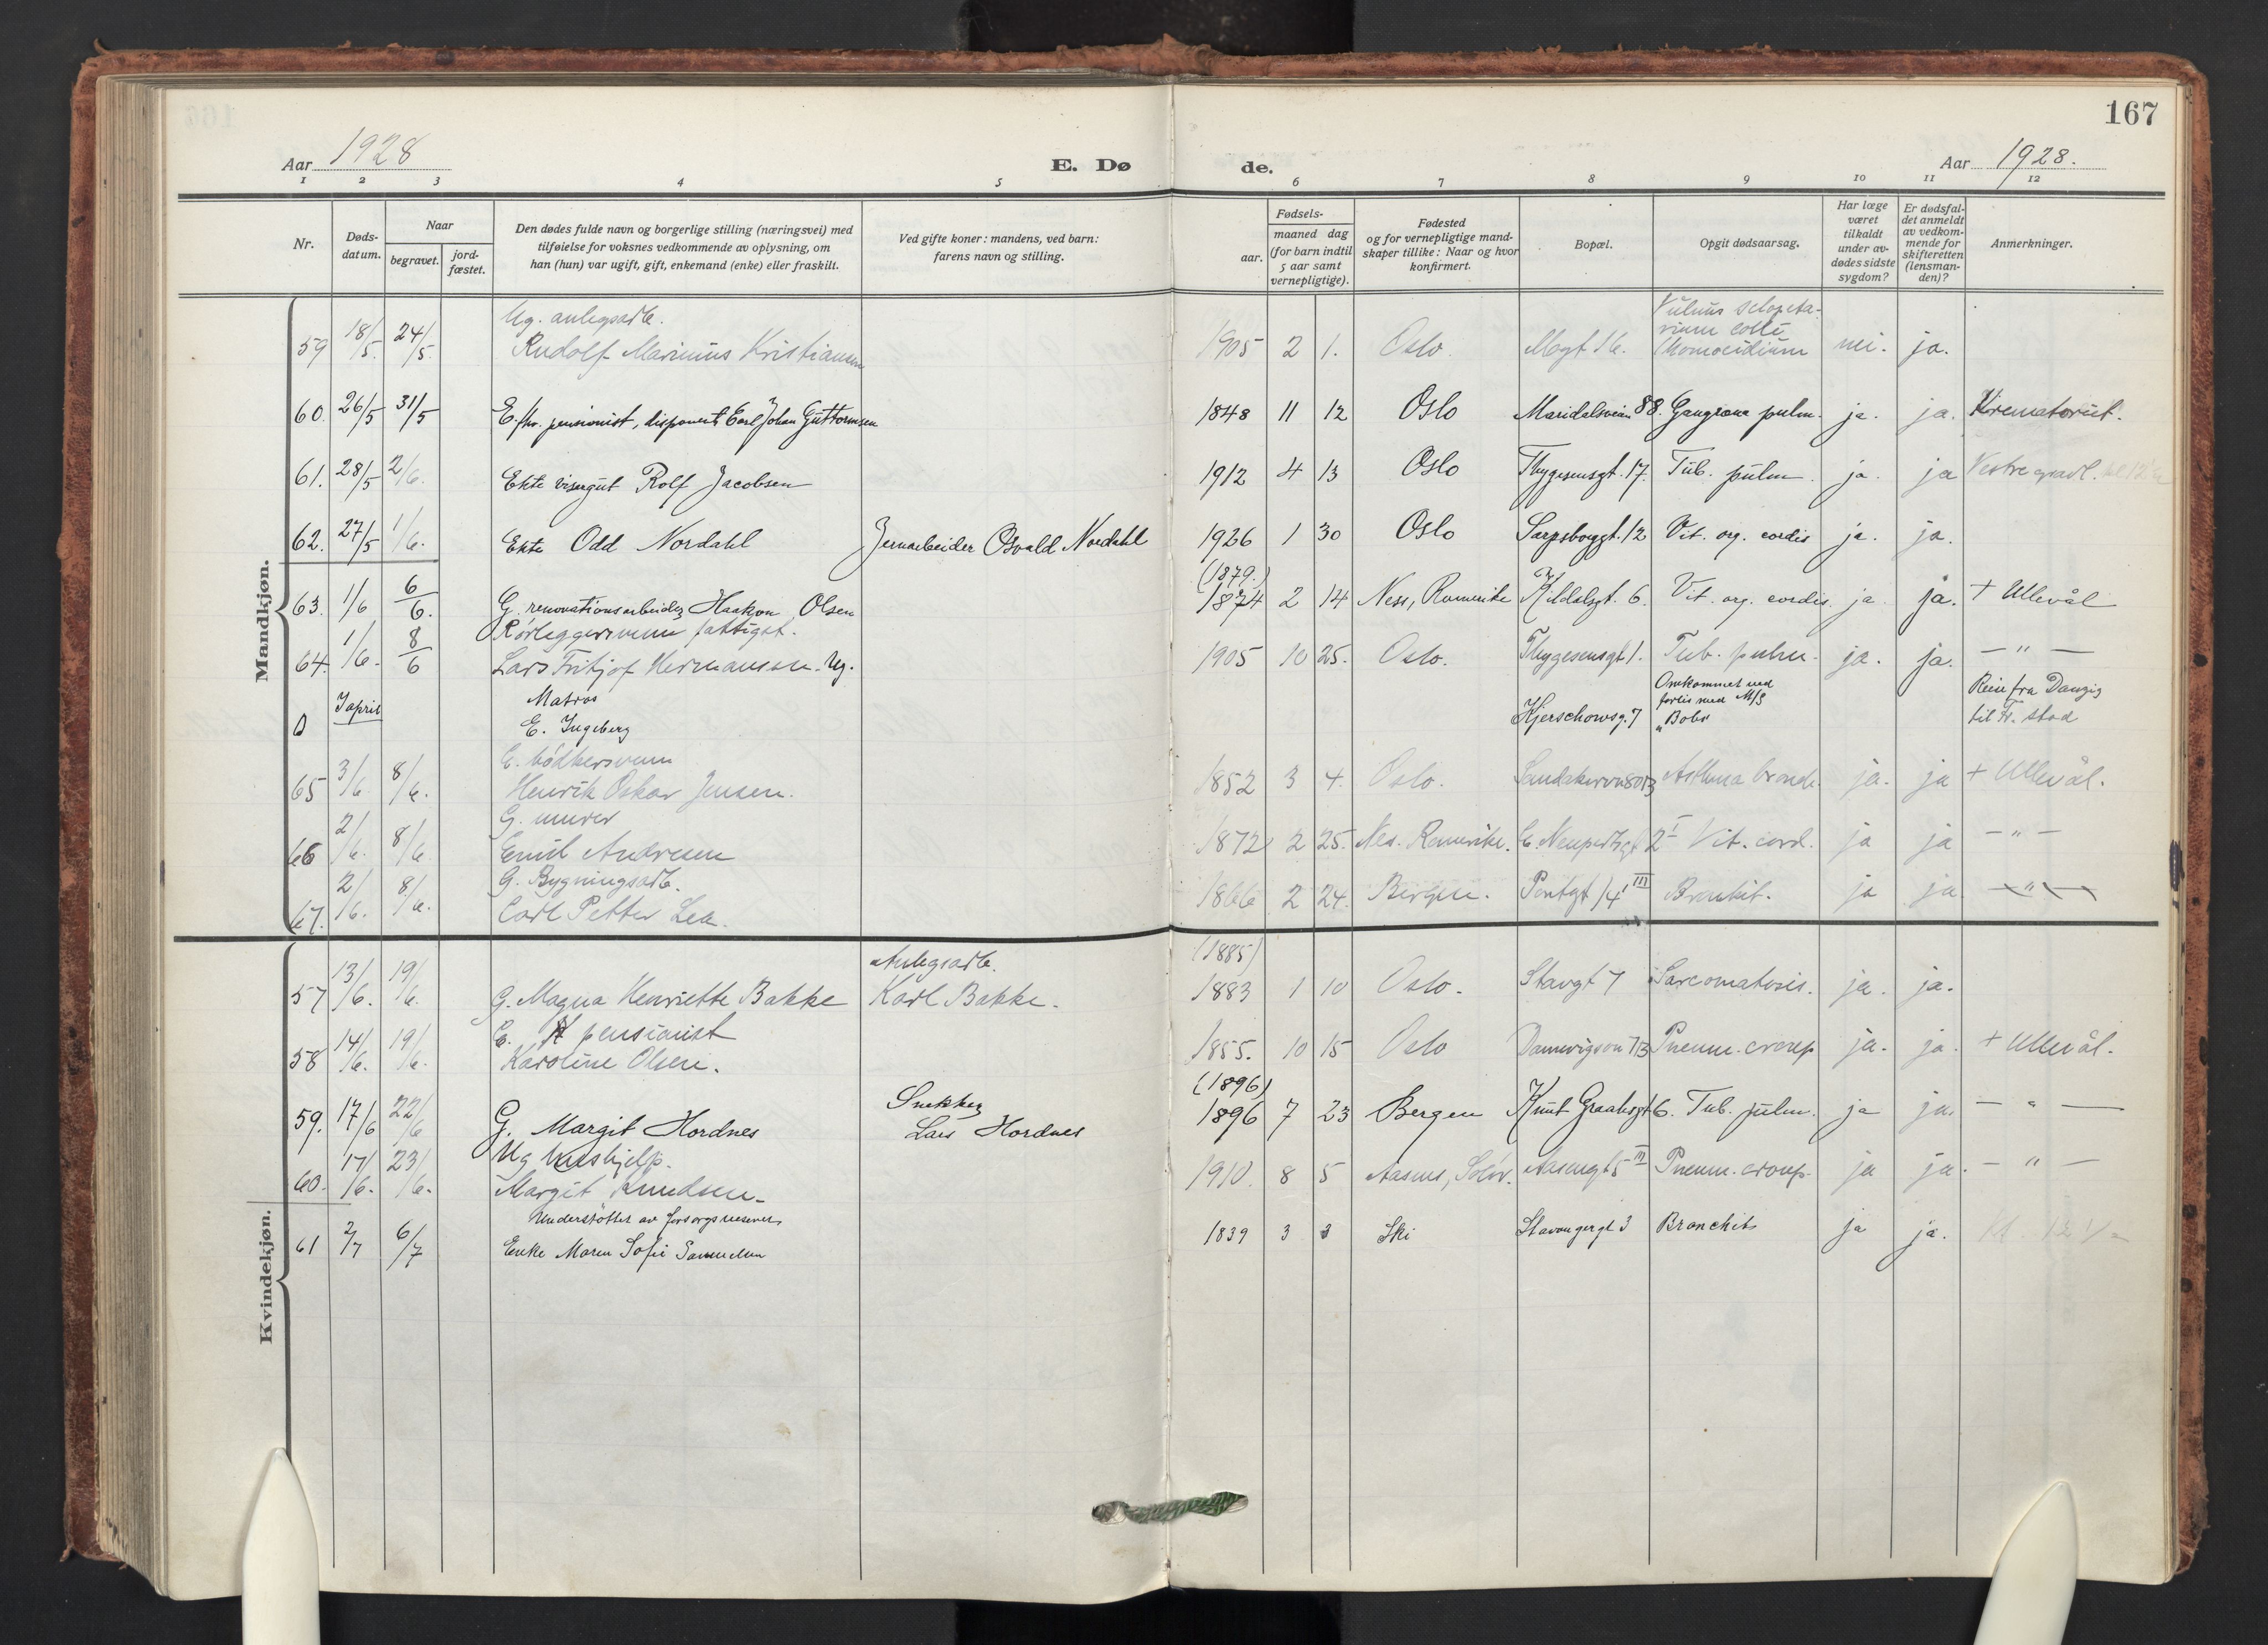 167
Aar 1928 E. Dø de. Aar 1928.
1 2 3 4 5 6 7 8 9 10 11 12
Nr.
Døds-
datum.
Naar
begravet.
jord-
fæstet.
Den dødes fulde navn og borgerlige stilling (næringsvei) med
tilføielse for voksnes vedkommende av oplysning, om
han (hun) var ugift, gift, enkemand (enke) eller fraskilt.
Ved gifte koner: mandens, ved barn:
farens navn og stilling.
Fødsels-
aar.
maaned dag
(for barn indtil
5 aar samt
vernepligtige).
Fødested
og for vernepligtige mand-
skaper tillike: Naar og hvor
konfirmert.
Bopæl.
Opgit dødsaarsag.
Har læge
været
tilkaldt
under av-
dødes sidste
sygdom?
Er dødsfal-
det anmeldt
av vedkom-
mende for
skifteretten
(lensman-
den)?
Anmerkninger.
Mandkjøn.
Ug. anlegsarb. Vulnus sclopeta-
rium colli
59 18/5. 24/5. Rudolf Marinius Kristiansen 1905 2 1. Oslo. Mogt 16. (homocidium nei. ja.
60. 26/5 31/5 E. fhv. pensionist, disponent Carl Johan Guttormsen 1848 11 12 Oslo Maridalsveien 88. Gangræna pulm. ja. ja. Krematoriet.
61. 28/5 2/6. Ekte visergut Rolf Jacobsen 1912 4 13 Oslo Thygesensgt. 17. Tub. pulm. ja. ja Vestre gravl.
62. 27/5 1/6. Ekte Odd Nordahl Jernarbeider Osvald Nordahl 1926 1 30 Oslo Sarpsborggt. 12 Vit. org. cordis ja. ja.
(1879.)
63. 1/6 6/6. G. renovationsarbeider Haakon Olsen 1874 2 14 Ness, Romerike Kildalsgt. 6. Vit. org. cordis. ja ja. + Ullevål
Rørleggersvenn fattigst.
64. 1/6. 8/6 Lars Fritjof Hermansen. Ug. 1905 10 25. Oslo. Thygesensgt 1. Tub. pulm. ja. ja. — " —
Matros Omkommet ved
forlis med M/S Reise fra Danzig
0 I april E. Ingeberg Kjerschowsg. 7 "Bob" til Fr. stad
E. bödkersvenn
65 3/6 8/6. Henrik Oskar Jensen. 1852 3 4. Oslo. Sandakervn 80B Asthma bronch. ja. ja + Ullevål.
G. murer
66 2/6. 8/6 Emil Andresen 1872 2 25. Nes. Romerike. E. Neupertsgt 2 I Vit. cord. ja ja — " —
G. Bygningsarb.
67. 2/6. 8/6. Carl Petter Lea. 1866 2 24. Bergen. Pontgt 14 III Bronkit. ja ja — " —
Kvindekjøn.
Anlegsarb. (1885)
57 13/6. 19/6. G. Magna Henriette Bakke Karl Bakke. 1883 1 10 Oslo. Stavgt 7 Sarcomatosis. ja. ja.
E. pensionist
58 14/6. 19/6. Karoline Olsen. 1855. 10 15 Oslo Dannevigsvn 7B Pneum. croup ja. ja. + Ullevål.
Snekker (1896)
59. 17/6 22/6 G. Margit Hordnes Lars Hordnes 1896 7 23 Bergen Knut Graahsgt 6. Tub. pulm. ja ja. — " —
Ug hushjelp.
60. 17/6. 23/6. Margit Knudsen. 1910. 8 5 Aasnes, Solør. Aasengt 5 II Pneum. croup. ja ja. — " —
Understøttet av forsorgsvesenet
61 2/7 6/7 Enke Maren Sofie Samuelsen 1839 3 3 Ski Stavangergt 3 Bronchit ja ja.